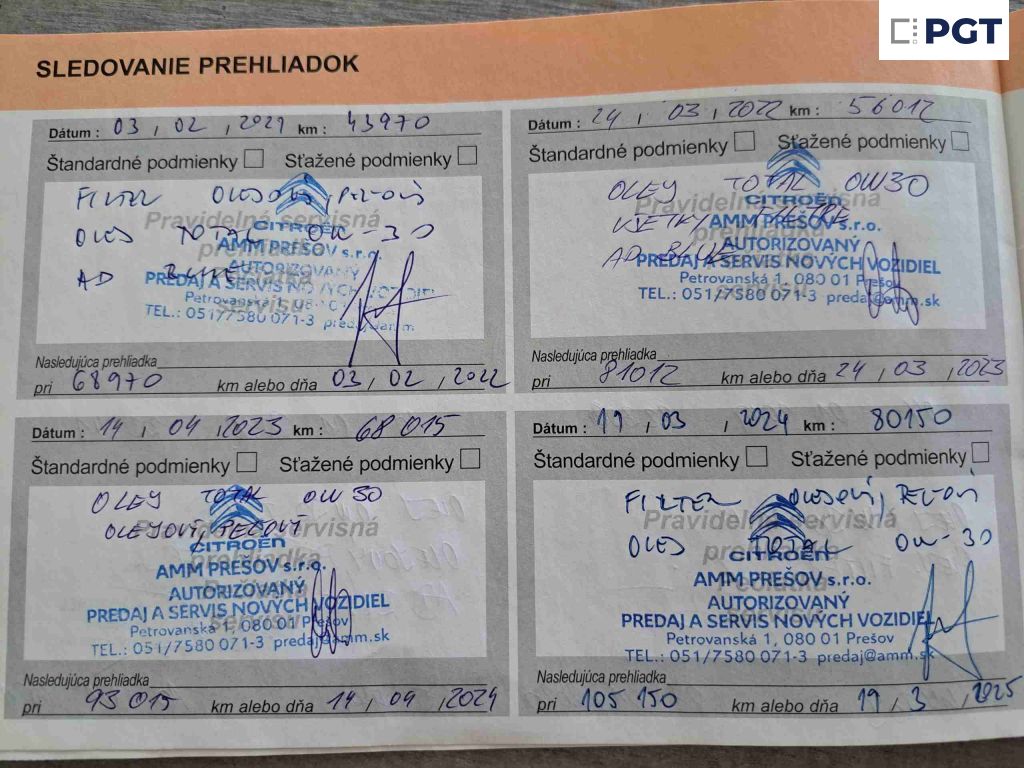 PGT
SLEDOVANIE PREHLIADOK
Dátum : 03, 02, 2021 km : 43970
Štandardné podmienky Sťažené podmienky
FILTER OLEJOVÝ, PEĽOVÝ
Pravidelná servisná
CITROËN
OLEJ TOTAL 0W-30
prehliadka
AMM PREŠOV s.r.o.
AUTORIZOVANÝ
AD BLUE
PREDAJ A SERVIS NOVÝCH VOZIDIEL
Petrovanská 1, 080 01 Prešov
servisu
TEL.: 051/7580 071-3 predaj@amm.
Nasledujúca prehliadka
pri 68970 km alebo dňa 03, 02, 2022
Dátum : 24, 03, 2022 km : 56012
Štandardné podmienky Sťažené podmienky
OLEJ TOTAL 0W30
CITROËN
Pravidelná servisná
VŠETKY FILTRE
AMM PREŠOV s.r.o.
AUTORIZOVANÝ
AD BLUE
PREDAJ A SERVIS NOVÝCH VOZIDIEL
Petrovanská 1, 080 01 Prešov
TEL.: 051/7580 071-3 predaj@amm.sk
Nasledujúca prehliadka
pri 81012 km alebo dňa 24, 03, 2023
Dátum : 14, 04, 2023 km : 68 015
Štandardné podmienky Sťažené podmienky
OLEJ TOTAL 0W30
OLEJOVÝ, PEĽOVÝ
Pravidelná servisná
CITROËN
prehliadka
AMM PREŠOV s.r.o.
AUTORIZOVANÝ
PREDAJ A SERVIS NOVÝCH VOZIDIEL
servisu
Petrovanská 1, 080 01 Prešov
TEL.: 051/7580 071-3 predaj@amm.sk
Nasledujúca prehliadka
pri 93 015 km alebo dňa 14, 04, 2024
Dátum : 19, 03, 2024 km : 80150
Štandardné podmienky Sťažené podmienky
FILTER OLEJOVÝ, PEĽOVÝ
Pravidelná servisná
OLEJ TOTAL 0W-30
prehliadka
CITROËN
AMM PREŠOV s.r.o.
Pečiatka
AUTORIZOVANÝ
PREDAJ A SERVIS NOVÝCH VOZIDIEL
Petrovanská 1, 080 01 Prešov
TEL.: 051/7580 071-3 predaj@amm.sk
Nasledujúca prehliadka
pri 105 150 km alebo dňa 19, 3, 2025